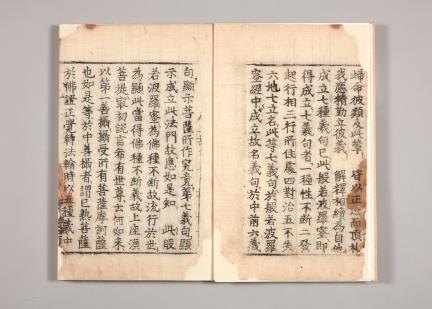 歸命彼類及此輩　皆以正心而頂礼
我應精勤立彼義　解釋相續為自他
成立七種義句已此般若波羅蜜即
得成立七義句者一種性不斷二發
起行相三行所住處四對治五不失
六地七立名此等七義句於般若波羅
蜜經中成立故名義句於中前六義
句顯示菩薩所作究竟第七義句顯
示成立此法門故應如是知　此般
若波羅蜜為佛種不斷故流行於世
為顯此當得佛種不斷義故上座須
菩提寂初説言希有世尊云何如來
以第一善攝攝所有菩薩摩訶薩
也如是等於中善攝者謂已熟菩薩
於佛證正覺轉法輪時以五種義中